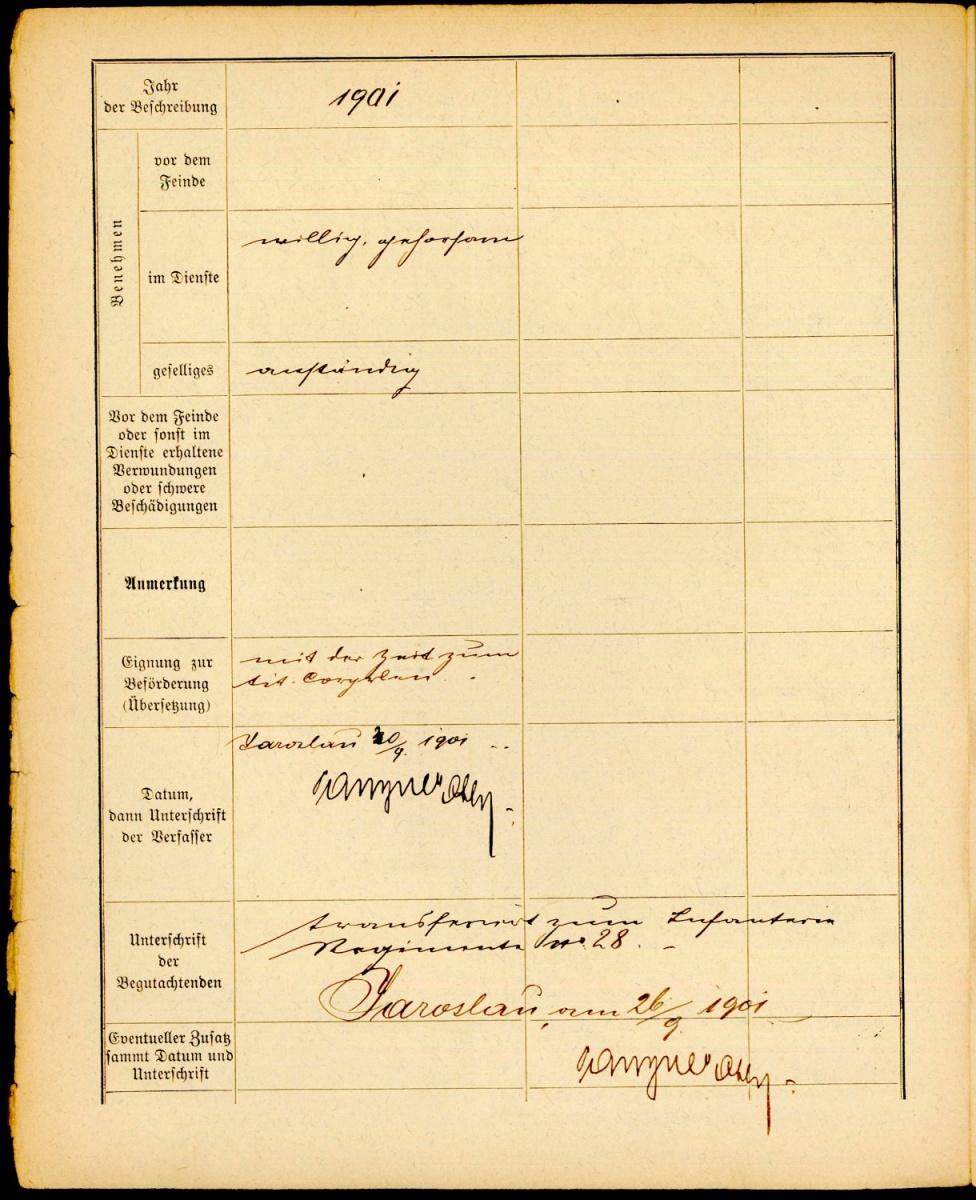 Jahr
der Beschreibung
1901
Benehmen
vor dem
Feinde
im Dienste
willig, gehorsam
geselliges
anständig
Vor dem Feinde
oder sonst im
Dienste erhaltene
Verwundungen
oder schwere
Beschädigungen
Anmerkung
Eignung zur
Beförderung
(Übersetzung)
mit der Zeit zum
tit. Corporalen
Datum,
dann Unterschrift
der Verfasser
Jaroslau 20/9. 1901
Unterschrift
der
Begutachtenden
transferirt zum Infanterie
Regimente No. 28.
Jaroslau, am 26/9 1901
Eventueller Zusatz
sammt Datum und
Unterschrift